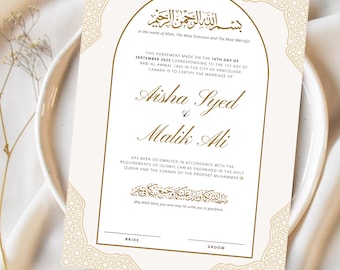 بسم الله الرحمن الرحيم
In the name of Allah, The Most Gracious and The Most Merciful
THIS AGREEMENT MADE ON THE 16TH DAY OF
SEPTEMBER 2023 CORRESPONDING TO THE 1ST DAY OF
RABI AL-AWWAL 1445 IN THE CITY OF VANCOUVER
CANADA IS TO CERTIFY THE MARRIAGE OF
Aisha Syed
&
Malik Ali
HAS BEEN SOLEMNIZED IN ACCORDANCE WITH THE
REQUIREMENTS OF ISLAMIC LAW AS ENSHRINED IN THE HOLY
QURAN AND THE SUNNAH OF THE PROPHET MUHAMMAD ﷺ
BRIDE
GROOM